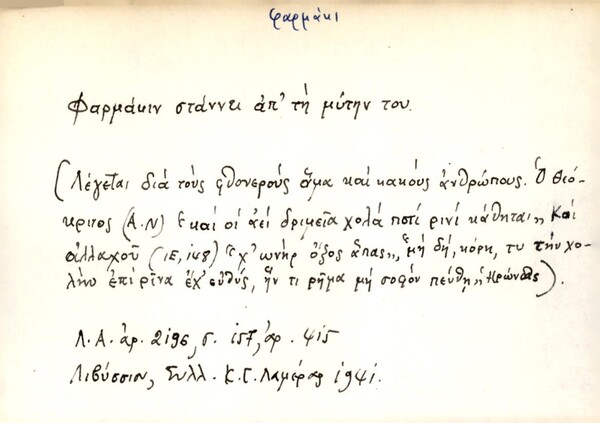 φαρμάκι
Φαρμάκιν στάννει ἀπ' τὴ μύτην του.
(Λέγεται διά τούς φθονερούς ἅμα καί κακούς ἀνθρώπους. Ὁ Θεό-
κριτος (Α.Ν) "καί οἱ ἀεί δριμεῖα χολά ποτί ρινί κάθηται„ Καί
ἀλλαχοῦ (ΙΕ, 148) "χ' ὡνήρ ὄξος ἅπας„, "μή δή, κόρη, τυ τήν χο-
λήν ἐπί ρῖνα ἔχ' εὐθύς, ἤν τι ρῆμα μή σοφόν πεύθη„ Ἡρώνδας).
Λ.Α. ἀρ. 2196, σ. 157, ἀρ. 415
Λιβύσσιον, Συλλ. Κ.Γ. Λαμέρας 1941.